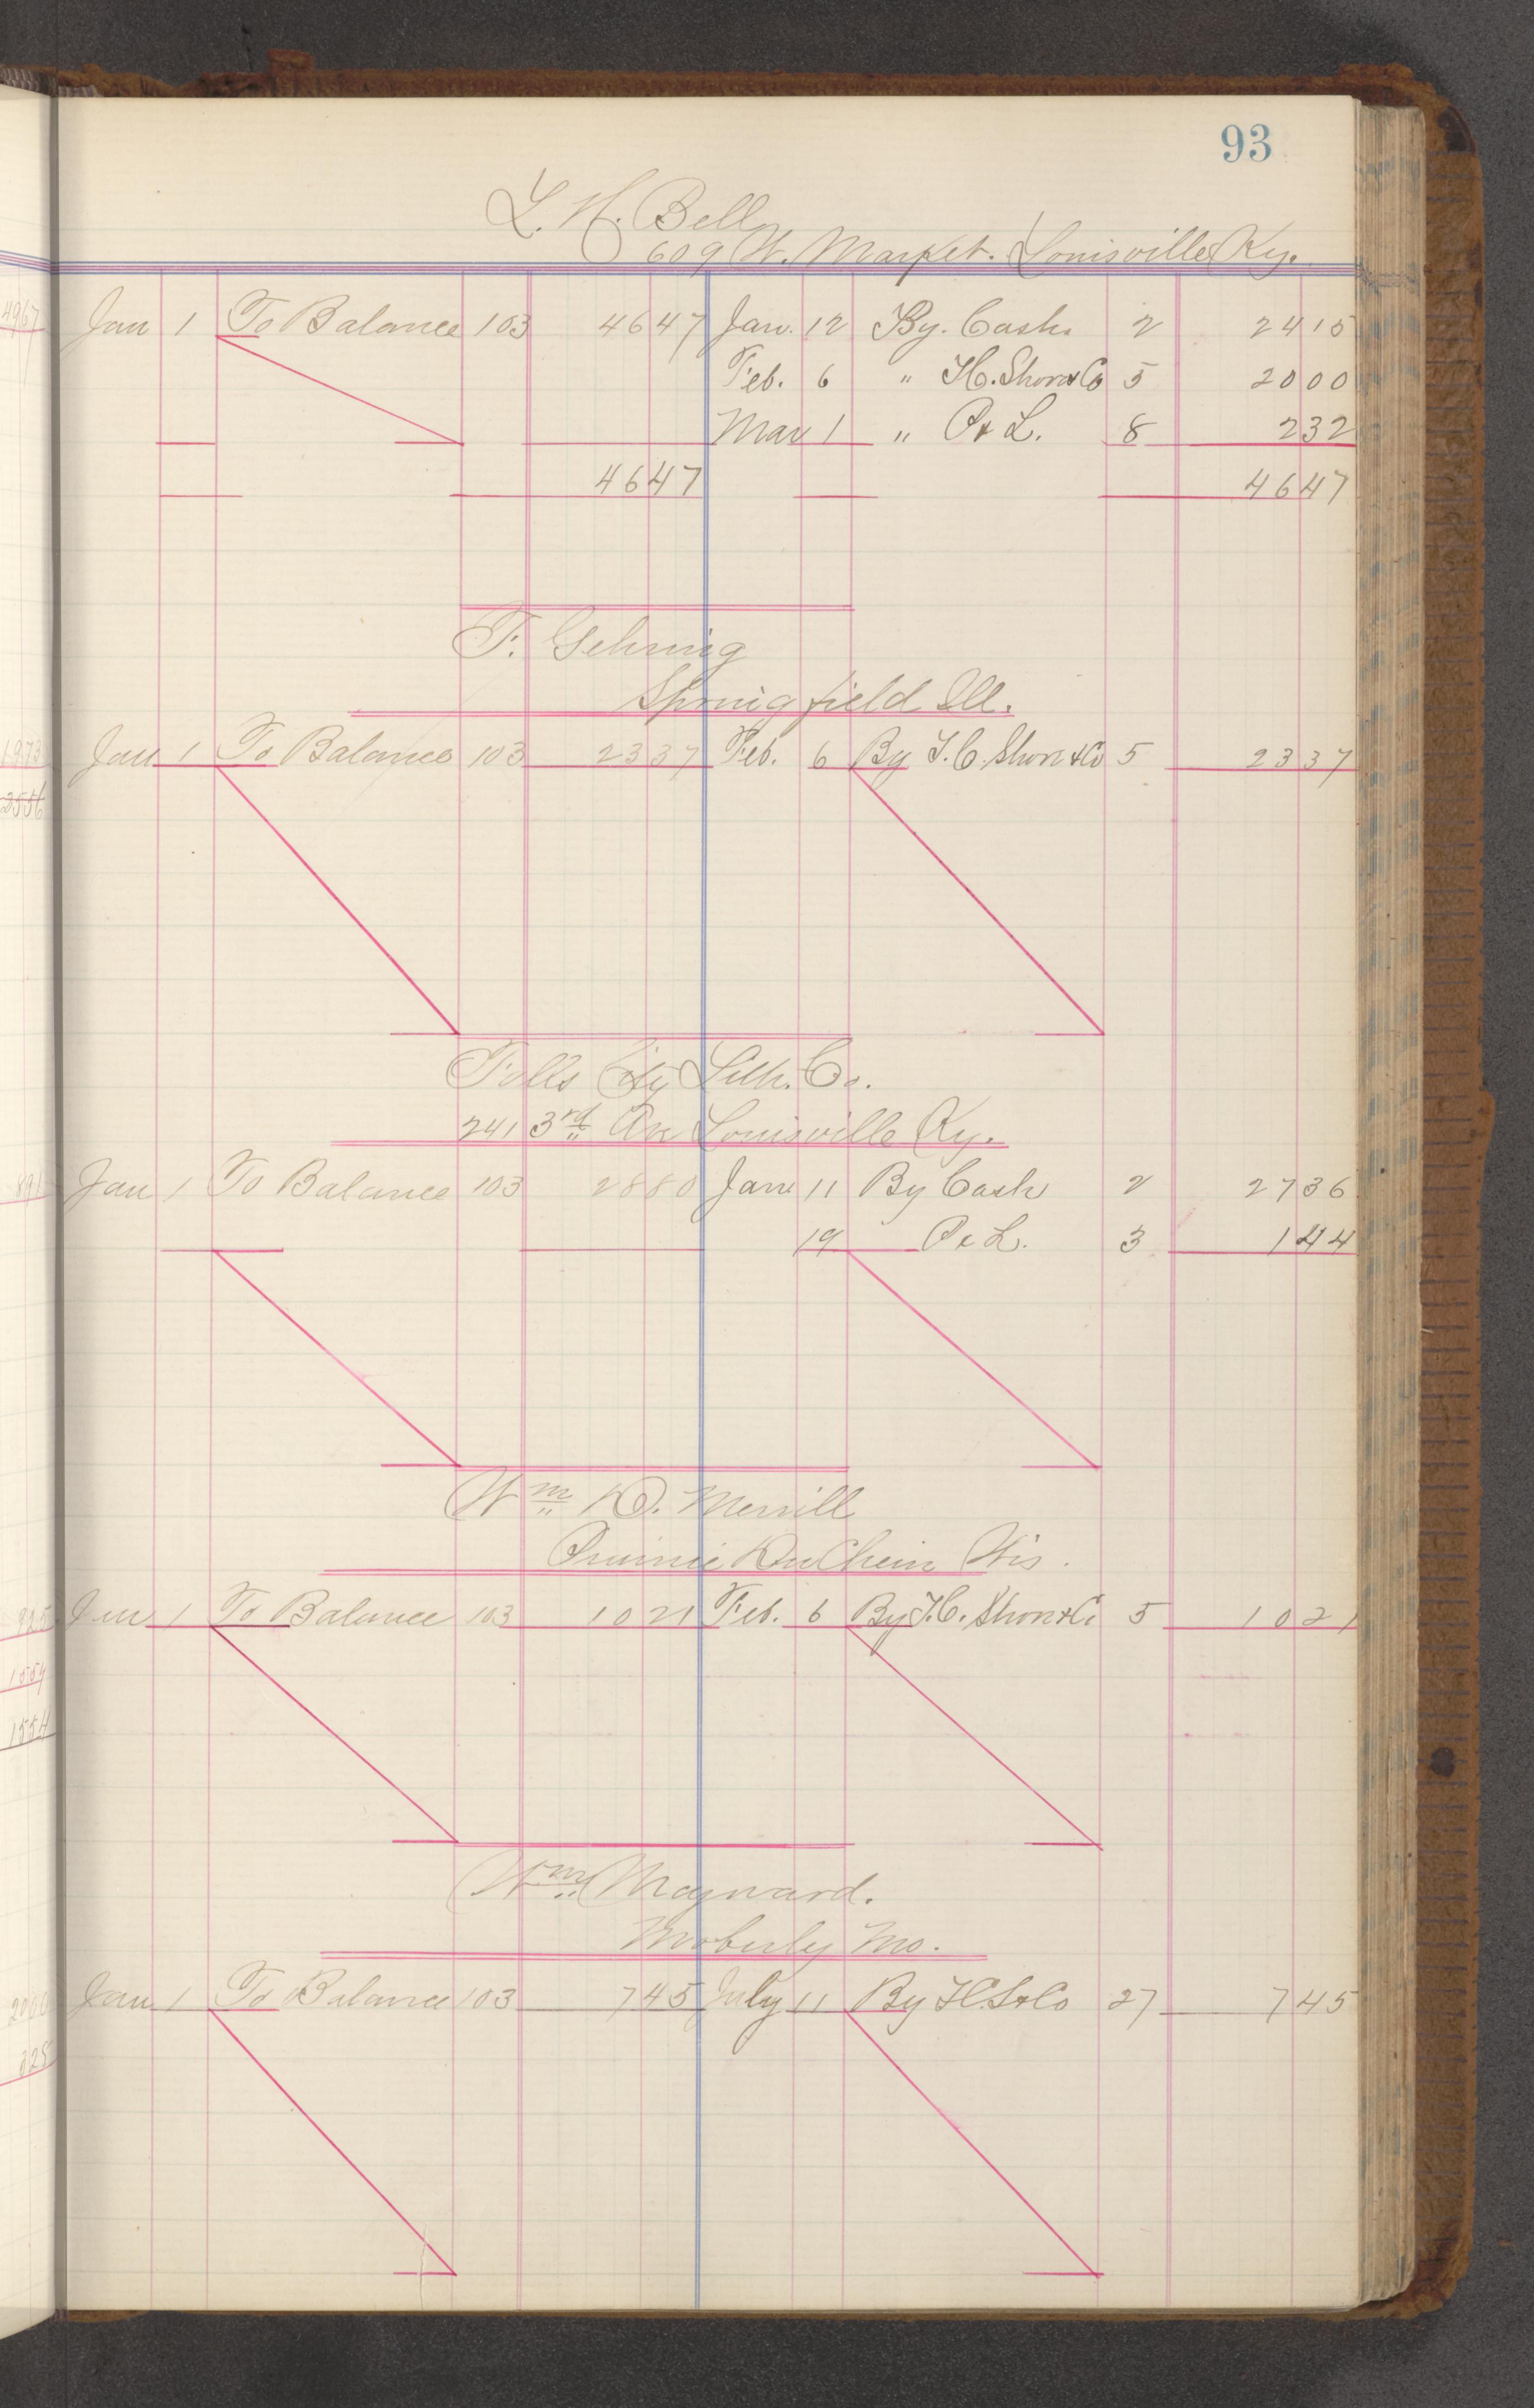 93
L. H. Bell
609 W. Market. Louisville Ky.
4967 Jan 1 To Balance 103 4647 Jan. 12 By. Cash 2 2415
Feb. 6 " H. Shore & Co 5 2000
Mar 1 " P & L. 8 232
4647 4647
F. Gehring
Springfield Ill.
1973 Jan 1 To Balance 103 2337 Feb. 6 By T. C. Shore & Co 5 2337
2556
Falls City Lith. Co.
241 3rd Ave Louisville Ky.
Jan 1 To Balance 103 2880 Jan 11 By Cash 2 2736
19 P & L. 3 144
Wm D. Merrill
Prairie Du Chein Wis.
925 Jan 1 To Balance 103 1021 Feb. 6 By T. C. Shore & Co 5 1021
1554
1554
Wm Maynard.
Moberly Mo.
2000 Jan 1 To Balance 103 745 July 11 By H C. S & Co 27 745